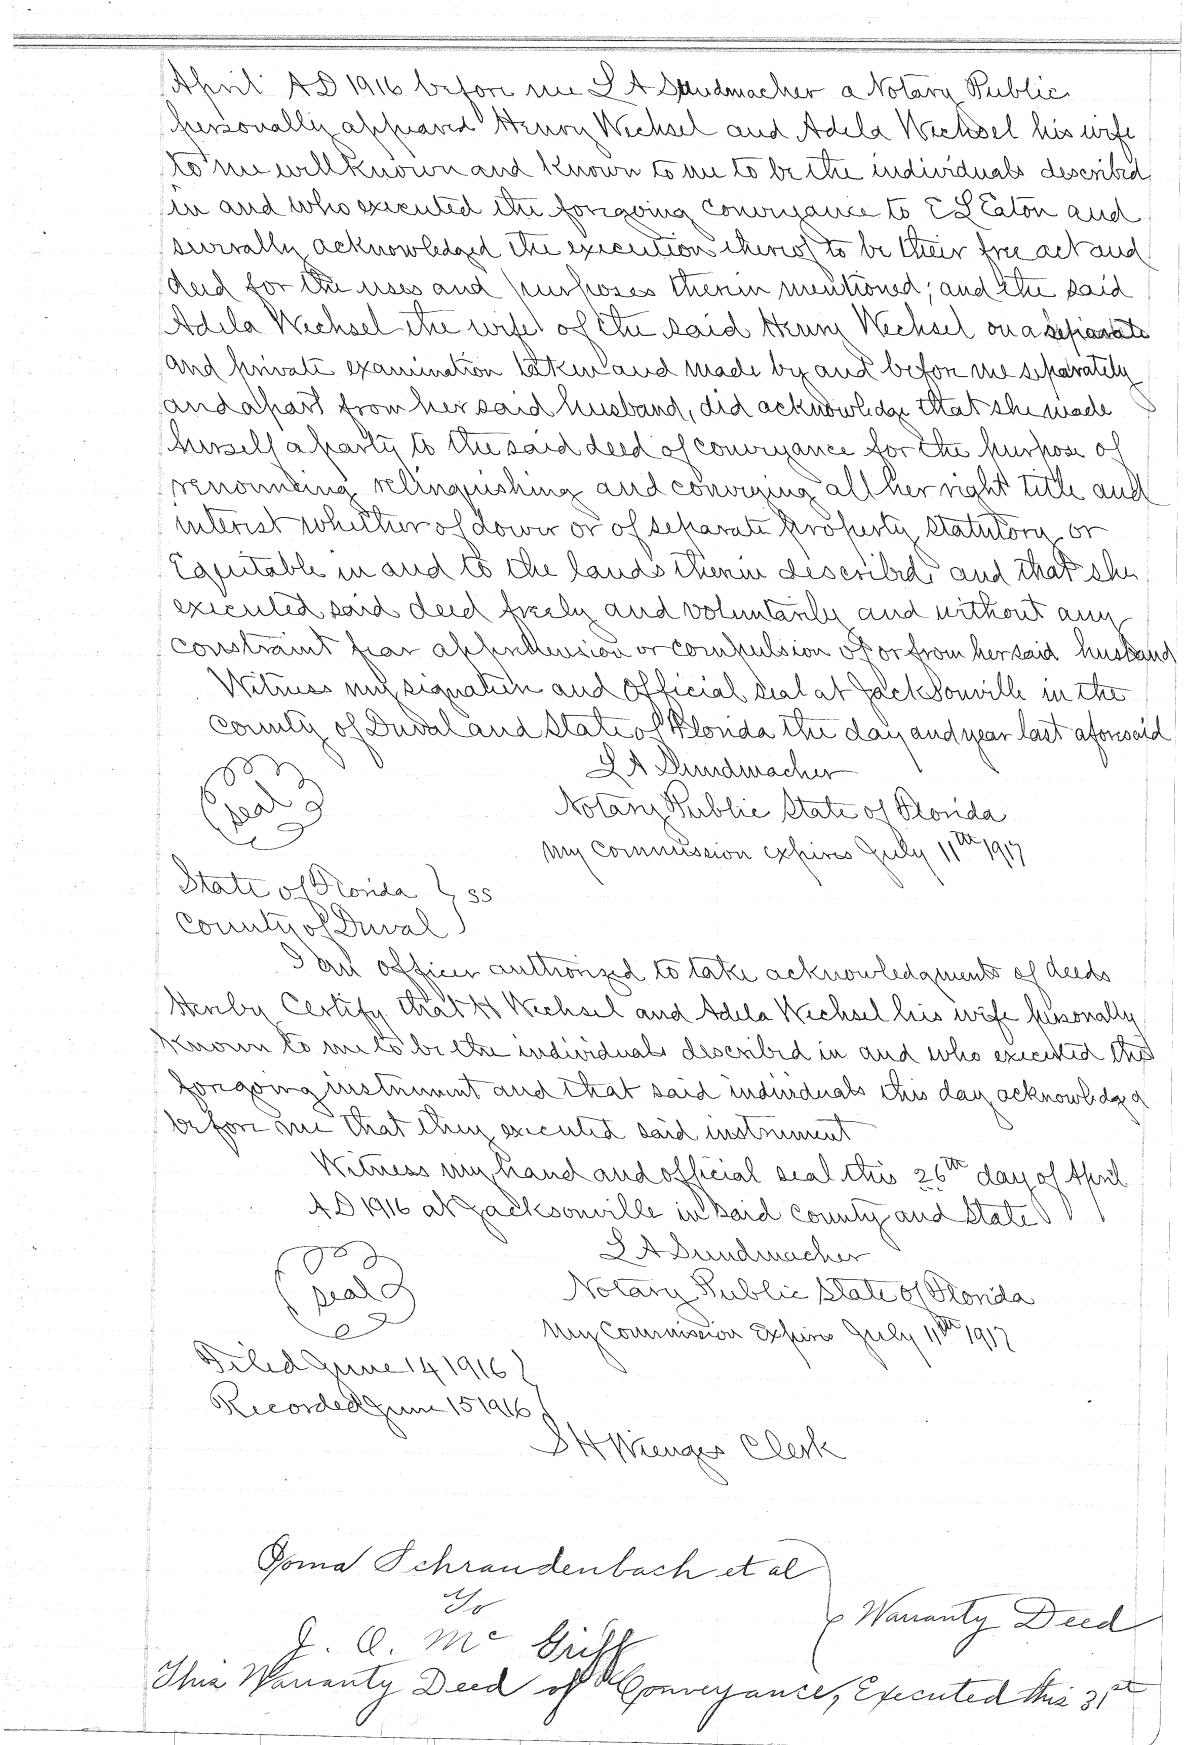 April A D 1916 before me L A Sundmacher a Notary Public
personally appeared Henry Wechsel and Adela Wechsel his wife
to me well known and known to me to be the individuals described
in and who executed the foregoing conveyance to E L Eaton and
severally acknowledged the execution thereof to be their free act and
deed for the uses and purposes therein mentioned; and the said
Adela Wechsel the wife of the said Henry Wechsel on a separate
and private examination taken and made by and before me separately
and apart from her said husband, did acknowledge that she made
herself a party to the said deed of conveyance for the purpose of
renouncing relinquishing and conveying all her right title and
interest whether of dower or of separate property statutory or
Equitable in and to the lands therein described and that she
executed said deed freely and voluntarily and without any
constraint fear apprehension or compulsion of or from her said husband
Witness my signature and official seal at Jacksonville in the
county of Duval and State of Florida the day and year last aforesaid
L A Sundmacher
(seal) Notary Public State of Florida
My commission expires July 11th 1917
State of Florida } ss
County of Duval }
I an officer authorized to take acknowledgments of deeds
Hereby Certify that H Wechsel and Adela Wechsel his wife personally
known to me to be the individuals described in and who executed the
foregoing instrument and that said individuals this day acknowledged
before me that they executed said instrument
Witness my hand and official seal this 26th day of April
A D 1916 at Jacksonville in said county and State
L A Sundmacher
(seal) Notary Public State of Florida
My commission Expires July 11th 1917
Filed June 14 1916 }
Recorded June 15 1916 }
S H Wienges Clerk
Schraudenbach et al
To
Warranty Deed
J. O. Mc Griff
This Warranty Deed of Conveyance, Executed this 31st